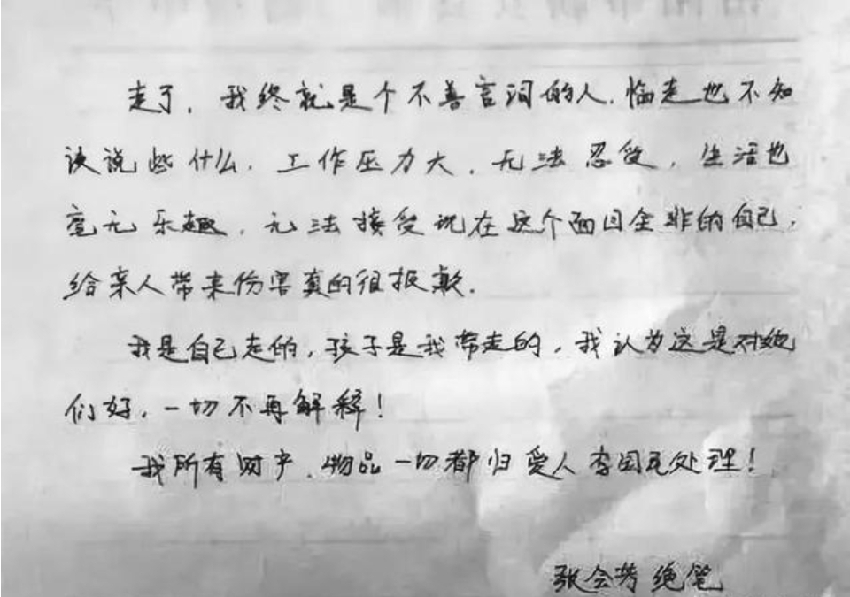 走了，我终就是个不善言词的人，临走也不知
该说些什么，工作压力大，无法忍受，生活也
毫无乐趣，无法接受现在这个面目全非的自己，
给亲人带来伤害真的很报歉。
我是自己走的，孩子是我带走的，我认为这是对她
们好，一切不再解释！
我所有财产、物品一切都归爱人李国无处理！
张会芳绝笔